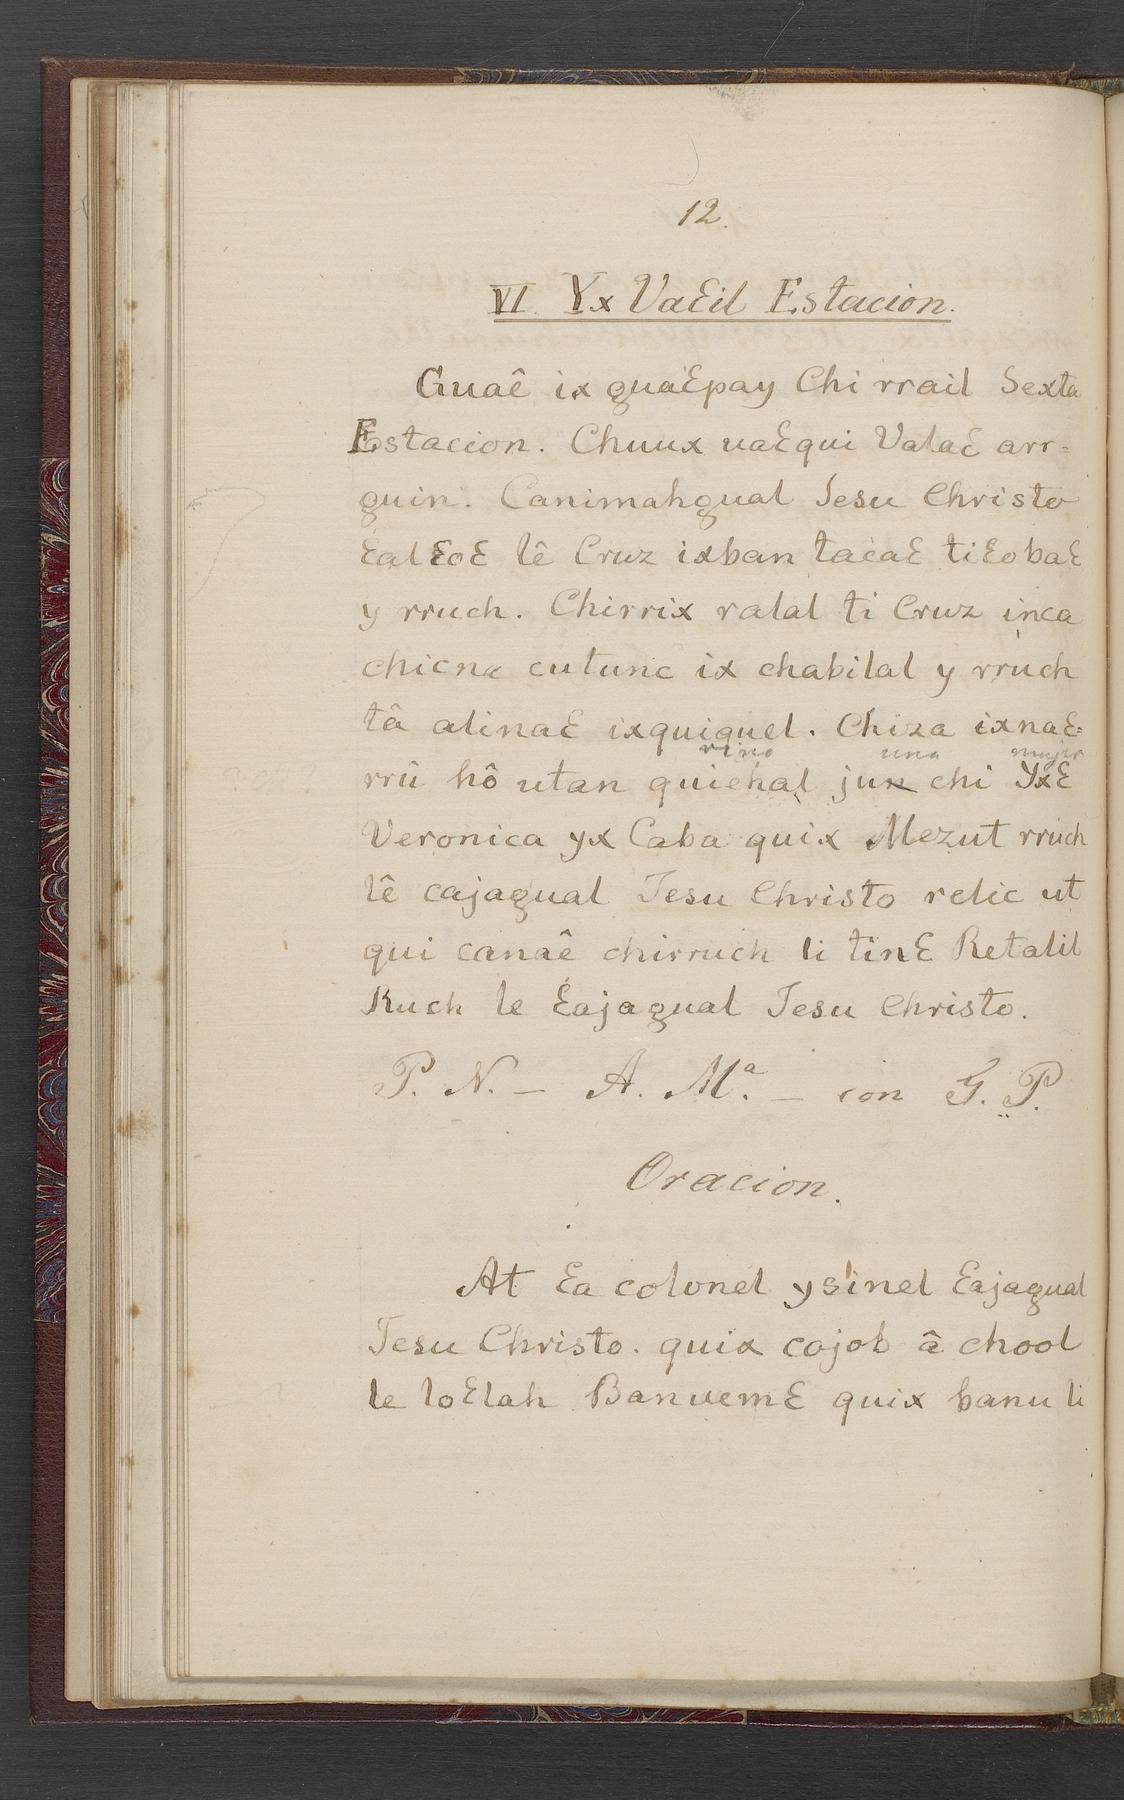 12.
VI. Yx VaƐil Estacion.
Guaê ix guaƐpay Chi rrail Sexta
Estacion. Chuux uaƐqui ValaƐ arr=
guin. Canimahgual Jesu Christo
ƐalƐoƐ lê Cruz ixban tacaƐ tiƐobaƐ
y rruch. Chirrix ralal ti Cruz inca
chicna cutunc ix chabilal y rruch
tâ alinaƐ ixquiquel. Chiza ixnaƐ=
vino una mujer
rrû hô utan quichal jun chi YxƐ
Veronica yx Caba quix Mezut rruch
lê cajagual Jesu Christo relic ut
qui canaê chirruch li tinƐ Retalil
Ruch le Ɛajagual Jesu Christo.
P. N. — A. Mª. — con G. P.
Oracion.
At Ɛa colonel ysinel Ɛajagual
Jesu Christo. quix cojob â chool
le loƐlah BanuemƐ quix banu li